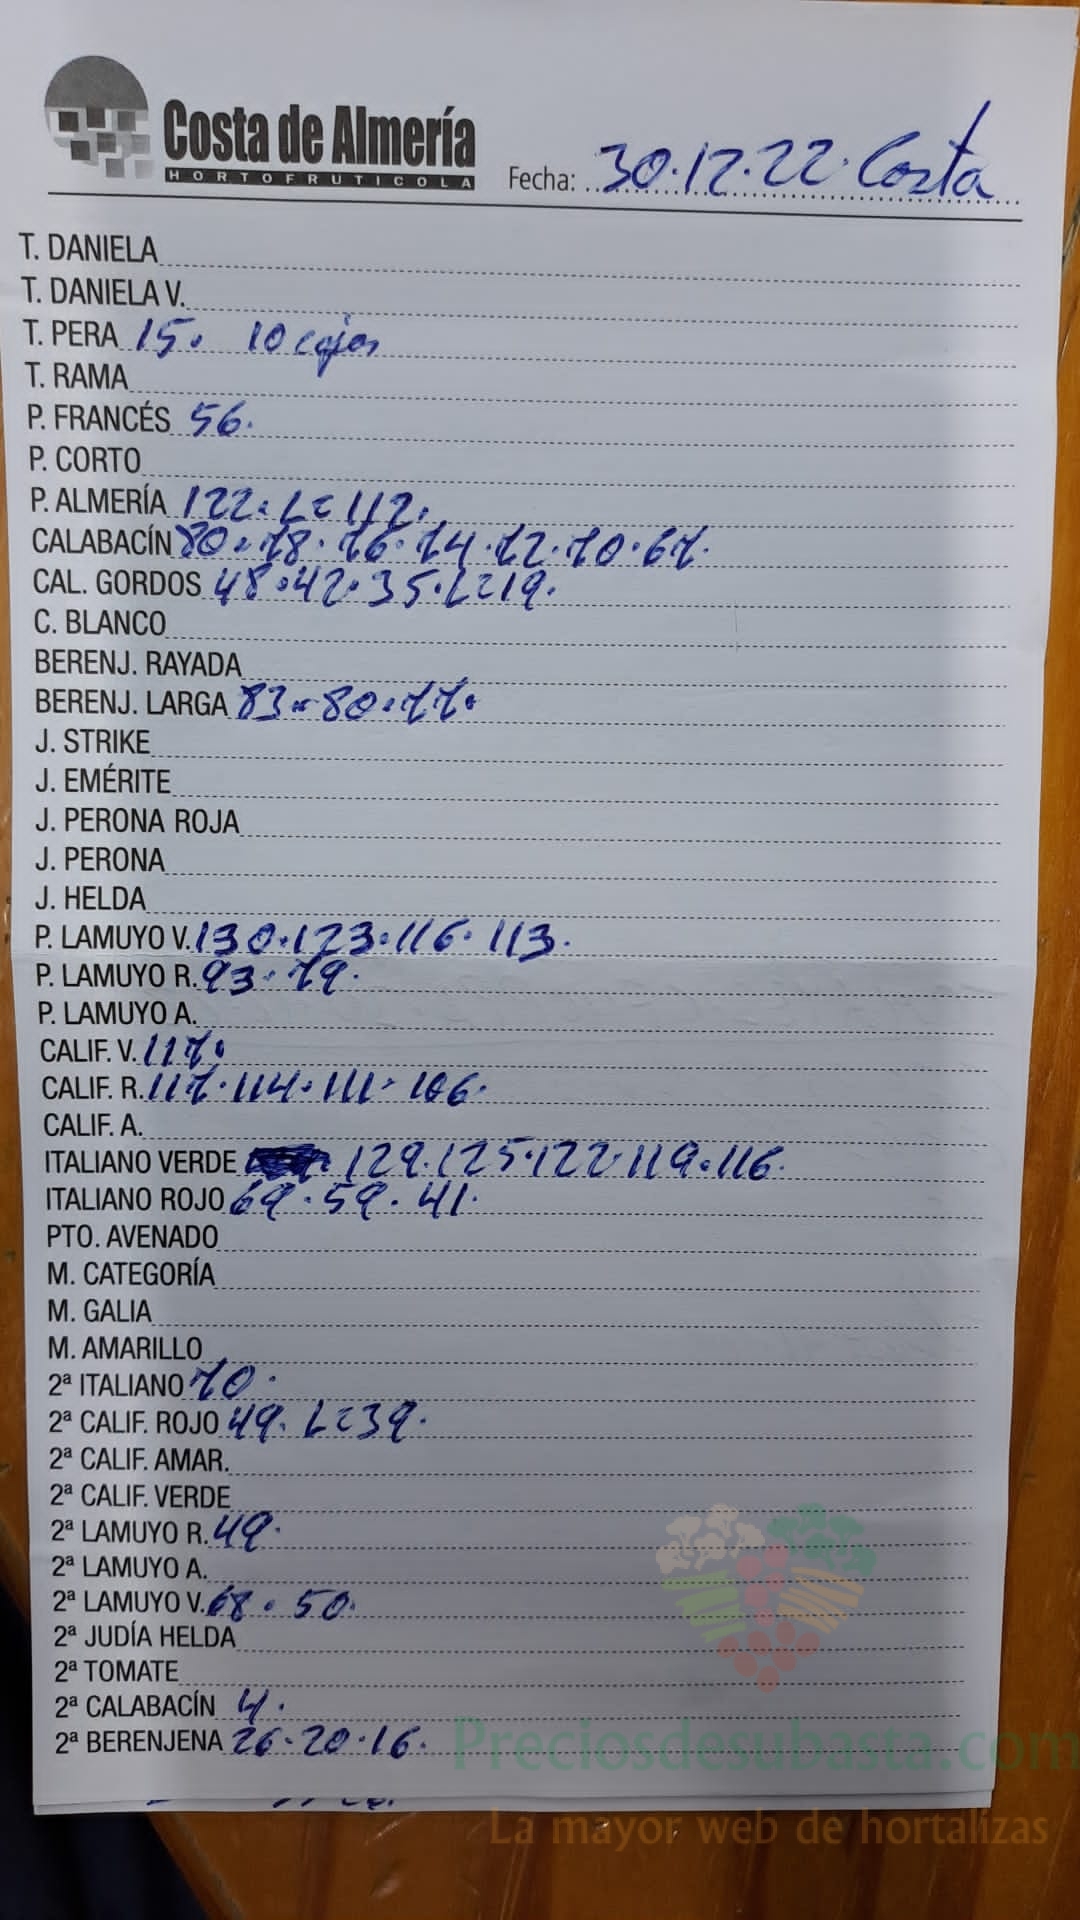 Costa de Almería
HORTOFRUTICOLA
Fecha: 30.12.22. Costa
T. DANIELA
T. DANIELA V.
T. PERA 15. 10 cajas
T. RAMA
P. FRANCÉS 56.
P. CORTO
P. ALMERÍA 122. L= 112.
CALABACÍN 80. 78. 76. 74. 72. 70. 67.
CAL. GORDOS 48. 42. 35. L= 19.
C. BLANCO
BERENJ. RAYADA
BERENJ. LARGA 83. 80. 77.
J. STRIKE
J. EMÉRITE
J. PERONA ROJA
J. PERONA
J. HELDA
P. LAMUYO V. 130. 123. 116. 113.
P. LAMUYO R. 93. 79.
P. LAMUYO A.
CALIF. V. 117.
CALIF. R. 117. 114. 111. 106.
CALIF. A.
ITALIANO VERDE 129. 125. 122. 119. 116.
ITALIANO ROJO 69. 59. 41.
PTO. AVENADO
M. CATEGORÍA
M. GALIA
M. AMARILLO
2ª ITALIANO 70.
2ª CALIF. ROJO 49. L= 39.
2ª CALIF. AMAR.
2ª CALIF. VERDE
2ª LAMUYO R. 49.
2ª LAMUYO A.
2ª LAMUYO V. 68. 50.
2ª JUDÍA HELDA
2ª TOMATE
2ª CALABACÍN 4.
2ª BERENJENA 26. 20. 16.
Preciosdesubasta.com
La mayor web de hortalizas